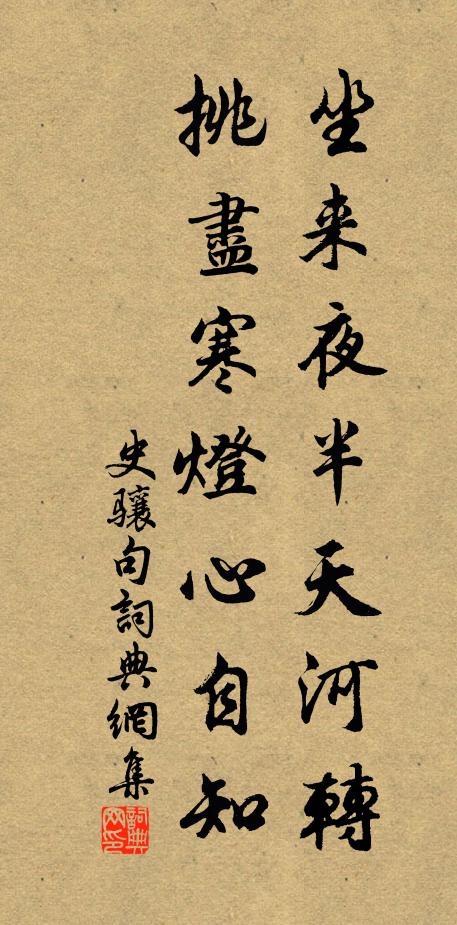 坐来夜半天河轉
挑盡寒燈心自知
史骧句詞典網集
詞典網印